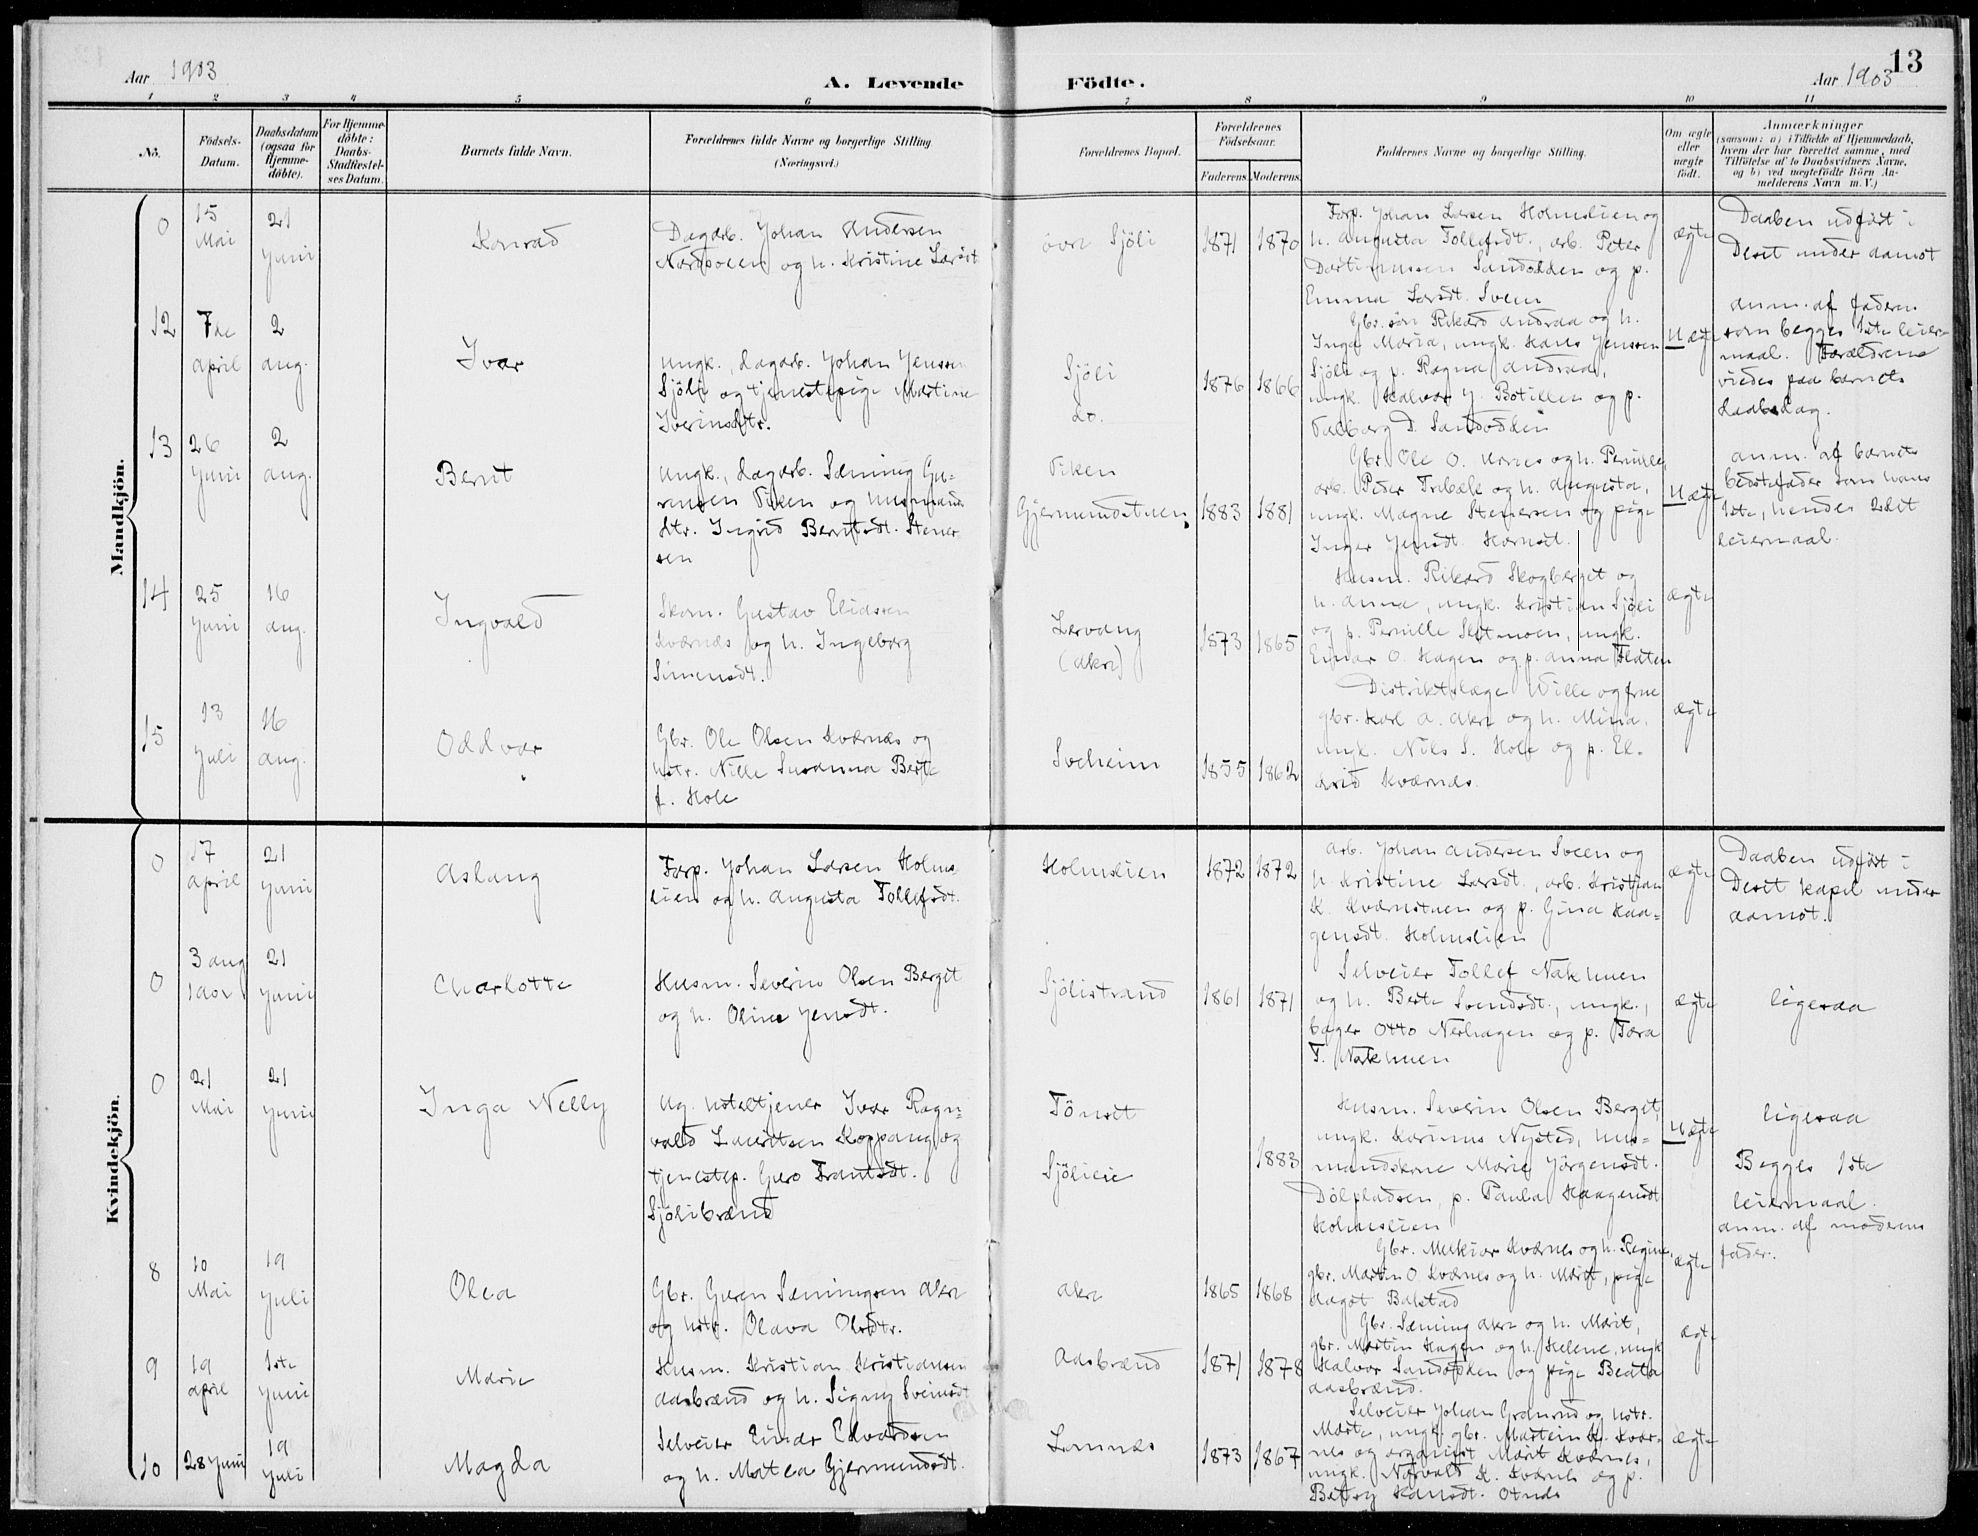 13
Aar 1903
A. Levende Födte.
Aar 1903
1 2 3 4 5 6 7 8 9 10 11
No.
Födsels-Datum.
Daabsdatum (ogsaa for Hjemme-döbte).
For Hjemme-döbte: Daabs-Stadfæstel-ses Datum.
Barnets fulde Navn.
Forældrenes fulde Navne og borgerlige Stilling
(Næringsvei.)
Forældrenes Bopæl.
Forældrenes Födselsaar.
Faderens Moderens
Faddernes Navne og borgerlige Stilling.
Om ægte eller uægte födt.
Anmærkninger
(saasom: a) i Tilfælde af Hjemmedaab,
hvem der har forrettet samme, med
Tilföielse af to Daabsvidners Navne,
og b) ved uægtefödte Börn An-
melderens Navn m. V.)
Mandkjön.
0
15 Mai
21 Juni
Konrad
Dagarb. Johan Andersen
og h. Kristine Larsdt.
övre Sjöli
1871 1870
Forp. Johan Larsen Holmslien og
h. Augusta Tollefsdt., arb. Peter
Sandodden og p.
Emma Larsdt. Sveen
ægte
Daaben udfört i
Deset under Aamot
12
7de April
2 Aug.
Ivar
Ungk. dagarb. Johan Jenssen
Sjöli og tjenestepige Martine
Iverinsdtr.
Sjöli
do.
1876 1866
Gbr. sön Rikard Andraa og h.
Inga Maria, ungk. Hans Jenssen
Sjöli og p. Ragna Andraa,
ungk. Halvor J. Botillen og p.
Valborg D. Sandodden
Uægte
anm. af faderen
som begges 1ste leier-
maal. Forældrene
viedes paa barnets
daabsdag.
13
26 Juni
2 Aug.
Bernt
Ungk., dagarb. Sæming Gu-
rensen Viken og husmands
dtr. Ingrid Berntsdt. Stener
sen
Viken
Gjermundstuen
1883 1881
Gbr. Ole O. Kornes og h. Pernille,
arb. Peder Trabælk og h. Augusta,
ungk. Magne Stenersen og pige
Inger Jensdt. Hornset.
Uægte
anm. af barnets
bedstefader som hans
1ste, hendes 2det
leiermaal.
14
25 Juni
16 Aug.
Ingvald
Skom. Gustav Eliassen
Kværnes og h. Ingeborg
Simensdt.
Lervang
(Akre)
1873 1865
Husm. Rikard Skogberget og
h. Anna, ungk. Kristian Sjöli
og p. Pernille Sletmoen, ungk.
Einar O. Hagen og p. Anna Flaten
ægte
15
13 Juli
16 Aug.
Oddvar
Gbr. Ole Olsen Kværnes og
hstr. Nille Susanna Berte
f. Hole
Solheim
1855 1862
Distriktslæge Wille og frue
gbr. Karl A. Akre og h. Mina,
ungk. Nils S. Hole og p. El-
drid Kværnes.
ægte
Kvindekjön.
0
17 April
21 Juni
Aslaug
Forp. Johan Larsen Holms
lien og h. Augusta Tollefsdt.
Holmslien
1872 1872
Arb. Johan Andersen Sveen og
h. Kristine Larsdt., arb. Kristian
K. Kværnstuen og p. Gina Haa-
gensdt. Holmslien
ægte
Daaben udfört i
Deset kapel under
Aamot.
0
3 Aug
21 Juni
Charlotte
Husm. Severin Olsen Berget
og h. Oline Jensdt.
Sjölistrand
1861 1871
Selveier Tollef Nakhuen
og h. Berte Svendsdt., ungk.,
bager Otto Nerhagen og p. Tora
T. Nakhuen
ægte
ligesaa
0
21 Mai
21 Juni
Inga Nelly
Ug. hoteltjener Ivar Ragn-
vald Lauritsen Koppang og
tjenestep. Guro Frantsdt.
Sjölibrænd
Tönset
Sjölieie
1883
Husm. Severin Olsen Berget,
ungk. Karinus Nysted, hus-
mandskone Marie Jörgensdt.
Dölpladsen, p. Paula Haagensdt.
Holmslien
Uægte
ligesaa
Begges 1ste
leiermaal.
anm. af moderens
fader.
8
10 Mai
19 Juli
Olea
Gbr. Guren Sæmingsen Akre
og hstr. Olava Olsdtr.
Akre
1865 1868
Gbr. Melkior Kværnes og h. Regine,
gbr. Martin O. Kværnes og h. Marit, pige
Dagot Bakstad
ægte
9
19 April
1ste Juni
Marie
Husm. Kristian Kristiansen
Aasbrænd og h. Signy Sveinsdt
Aasbrænd
1871 1878
Gbr. Sæming Akre og h. Marit,
gbr. Martin Hagen og h. Helene, ungk
Halvor Sandodden og pige Beata
Aasbrænd.
ægte
10
28 Juni
19 Juli
Magda
Selveier Einar Edvardsen
og h. Matea Gjermundsdt.
Lomnes
1873 1867
Selveier Johan Granrud og hstr.
Marte, ungk. gbr. Martein H. Kvær-
nes og organist Marit Kværnes,
ungk. Narvald K. Kværnes og p.
Betsy Hansdt. Otnes
ægte